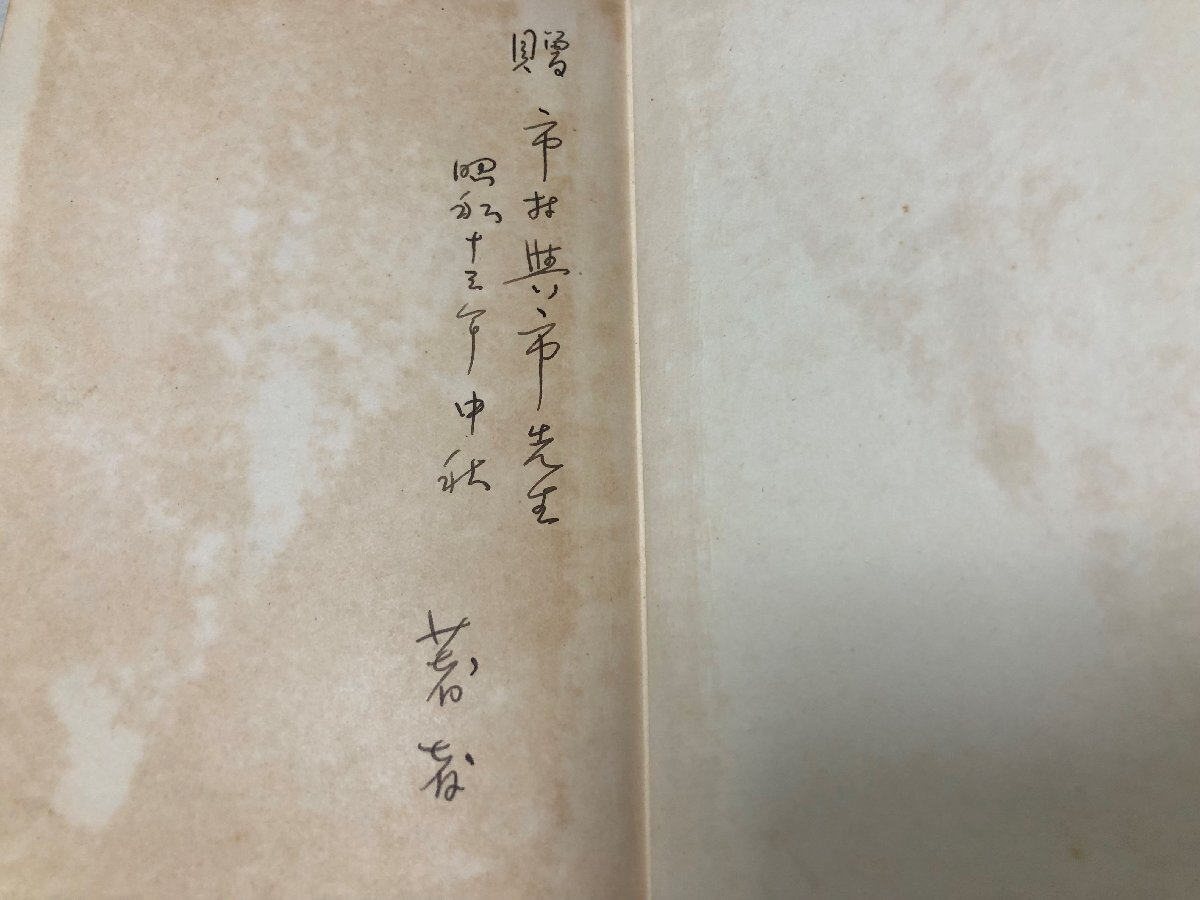 贈 市村與市先生
昭和十三年中秋
著者